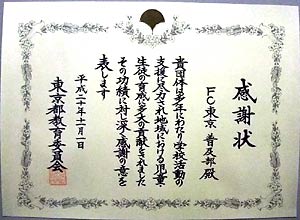 感謝状
FC東京 普及部殿
貴団体は多年にわたり学校活動の
支援に尽力され地域における児童
生徒の育成に多大の貢献をされました
その功績に対し深く感謝の意を
表します
平成二十年十一月一日
東京都教育委員会